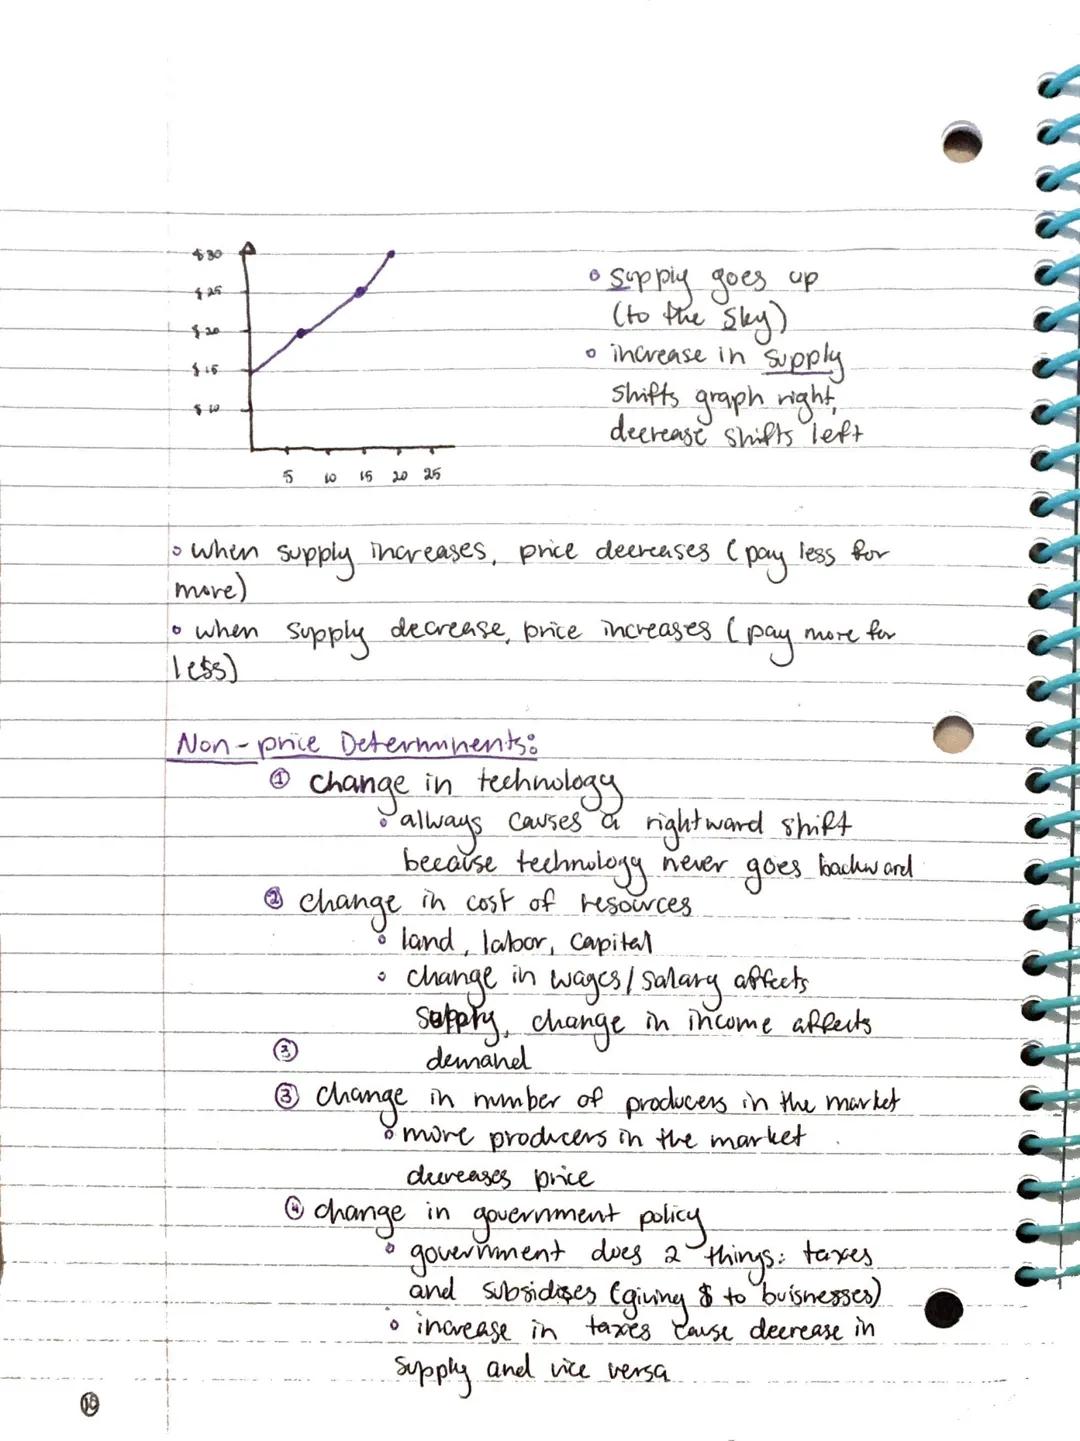 $30
$25
$20
$15
$10
5 10 15 20 25
° supply goes up
(to the sky)
° increase in supply
shifts graph right,
decrease shifts left
° when supply increases, price decreases (pay less for
more)
° when supply decrease, price increases (pay more for
less)
Non-price Determinents:
① change in technology
° always causes a rightward shift
because technology never goes backward
② change in cost of resources
° land, labor, capital
° change in wages/salary affects
supply, change in income affects
③ demand
③ change in number of producers in the market
° more producers in the market
decreases price
④ change in government policy
° government does 2 things: taxes
and subsidises (giving $ to buisnesses)
° increase in taxes cause decrease in
supply and vice versa